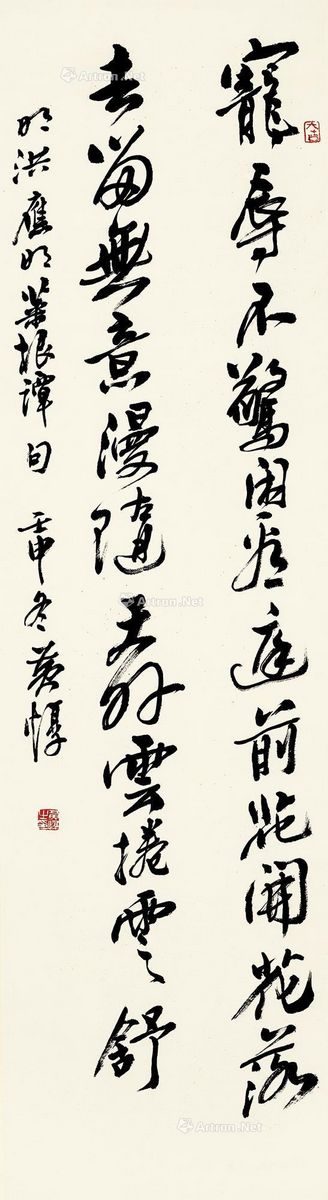 寵辱不驚閑看庭前花開花落
去留無意漫隨天外雲捲雲舒
明洪應明菜根譚句 壬申冬黃惇
Artron.Net
Artron.Net
Artron.Net
Artron.Net